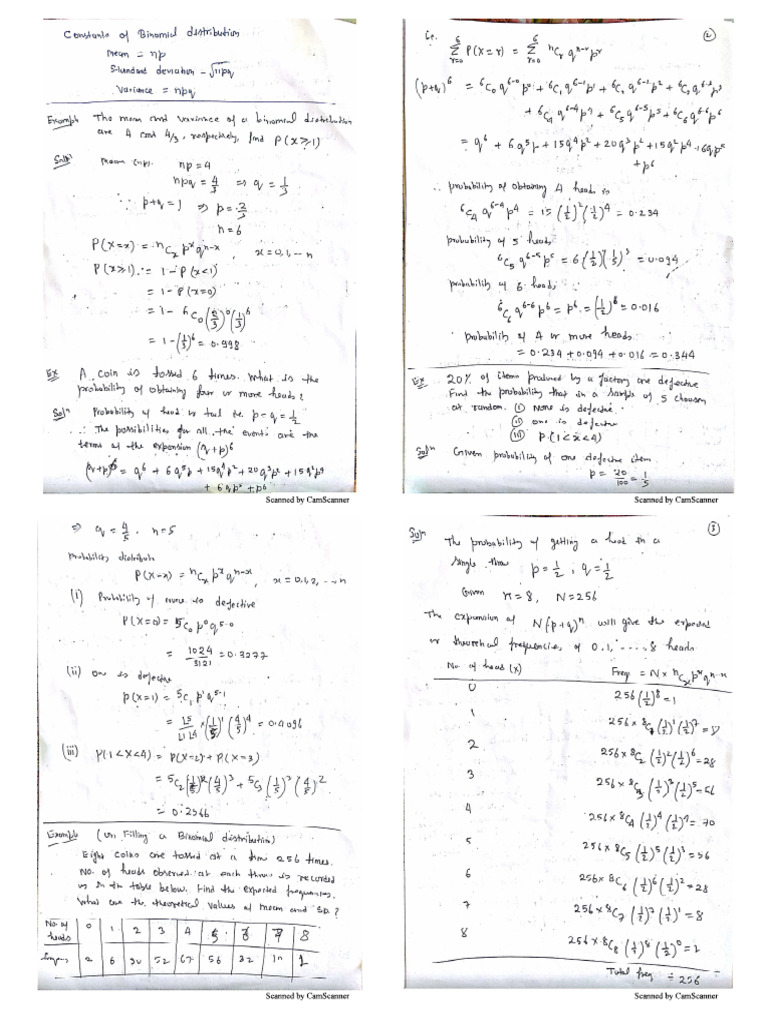 Constants of Binomial distribution
mean = np
Standard deviation - √npq
Variance = npq
Example The mean and variance of a binomial distribution
are 4 and 4/3, respectively, find P(X≥1)
Solⁿ: mean (np). np = 4
npq = 4/3 ⇒ q = 1/3
∵ p+q = 1 ⇒ p = 2/3
n = 6
P(X=x) = nCx p^x q^n-x, x = 0,1,--n
P(X≥1) = 1 - P(X<1)
= 1 - P(X=0)
= 1 - 6C0 (2/3)^0 (1/3)^6
= 1 - (1/3)^6 = 0.998
Ex A coin is tossed 6 times. What is the
probability of obtaining four or more heads?
Solⁿ Probability of head or tail i.e. p = q = 1/2
∴ The possibilities for all the events are the
terms of the expansion (q+p)^6
(q+p)^6 = q^6 + 6q^5p + 15q^4p^2 + 20q^3p^3 + 15q^2p^4
+ 6qp^5 + p^6
Scanned by CamScanner
②
i.e. 6Σr=0 P(X=r) = 6Σr=0 nCr q^n-r p^r
(p+q)^6 = 6C0 q^6-0 p^0 + 6C1 q^6-1 p^1 + 6C2 q^6-2 p^2 + 6C3 q^6-3 p^3
+ 6C4 q^6-4 p^4 + 6C5 q^6-5 p^5 + 6C6 q^6-6 p^6
= q^6 + 6q^5p + 15q^4p^2 + 20q^3p^3 + 15q^2p^4 + 6qp^5
+ p^6
∴ probability of obtaining 4 heads is
6C4 q^6-4 p^4 = 15 (1/2)^2 (1/2)^4 = 0.234
probability of 5 heads
6C5 q^6-5 p^5 = 6 (1/2) = 0.094
probability of 6 heads
6C6 q^6-6 p^6 = p^6 = (1/2)^6 = 0.016
probability of 4 or more heads
= 0.234 + 0.094 + 0.016 = 0.344
Ex 20% of items produced by a factory are defective
Find the probability that in a sample of 5 chosen
at random. (i) None is defective
(ii) one is defective
(iii) P(1<x<4)
Solⁿ Given probability of one defective item
p = 20/100 = 1/5
Scanned by CamScanner
⇒ q = 4/5, n=5
Probability distribute
P(X=x) = nCx p^x q^n-x, x = 0,1,2, ---n
(i) Probability of none is defective
P(X=0) = 5C0 p^0 q^5-0
= 1024/3121 = 0.3277
(ii) one is defective
P(X=1) = 5C1 p^1 q^5-1
= (1/5)^1 (4/5)^4 = 0.4096
(iii) P(1<X<4) = P(X=2) + P(X=3)
= 5C2 (1/5)^2 (4/5)^3 + 5C3 (1/5)^3 (4/5)^2
= 0.2566
Example (on Filling a Binomial distribution)
Eight coins are tossed at a time 256 times.
No. of heads observed at each throw is recorded
is in the table below. Find the expected frequencies.
What are the theoretical values of mean and SD?
No of heads 0 1 2 3 4 5 6 7 8
2 6 30 52 67 56 32 10 1
Scanned by CamScanner
③
Solⁿ The probability of getting a head in a
single throw p = 1/2, q = 1/2
Given n = 8, N = 256
The expansion of N(p+q)^n will give the expected
or theoretical frequencies, of 0,1, ---- 8 heads.
No. of head (x) Freq = N x nCx p^x q^n-x
0 256 (1/2)^8 = 1
1 256 x 8C1 (1/2)^1 (1/2)^7 =
2 256 x 8C2 (1/2)^2 (1/2)^6 = 28
3 256 x 8C3 (1/2)^3 (1/2)^5 = 56
4 256 x 8C4 (1/2)^4 (1/2)^4 = 70
5 256 x 8C5 (1/2)^5 (1/2)^3 = 56
6 256 x 8C6 (1/2)^6 (1/2)^2 = 28
7 256 x 8C7 (1/2)^7 (1/2)^1 = 8
8 256 x 8C8 (1/2)^8 (1/2)^0 = 1
Total freq = 256
Scanned by CamScanner